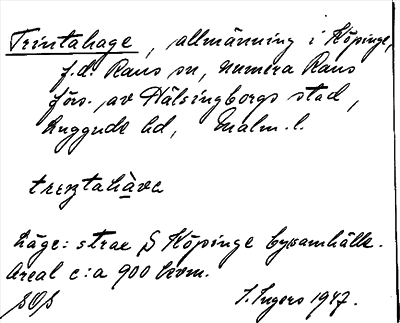 Trintahage, allmänning i Köpinge,
f.d. Raus sn, numera Raus
förs. av Hälsingborgs stad,
Luggude hd, Malm. l.
trɛntahàva
Läge: strax S Köpinge bysamhälle.
Areal c:a 900 kvm.
S. Ingers 1947.